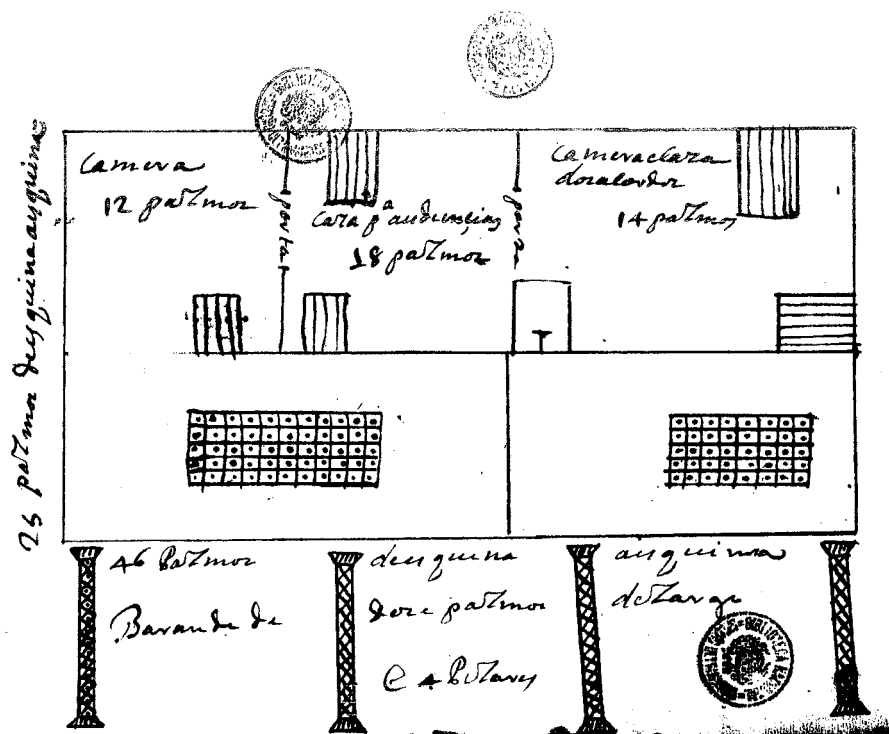 25 palmos desquina a esquina
Camera
12 palmos
porta
Casa pª audiencias
18 palmos
porta
Camera
14 palmos
46 Palmos desquina a esquina
Baranda de doze palmos de largo
E 4 Pilares